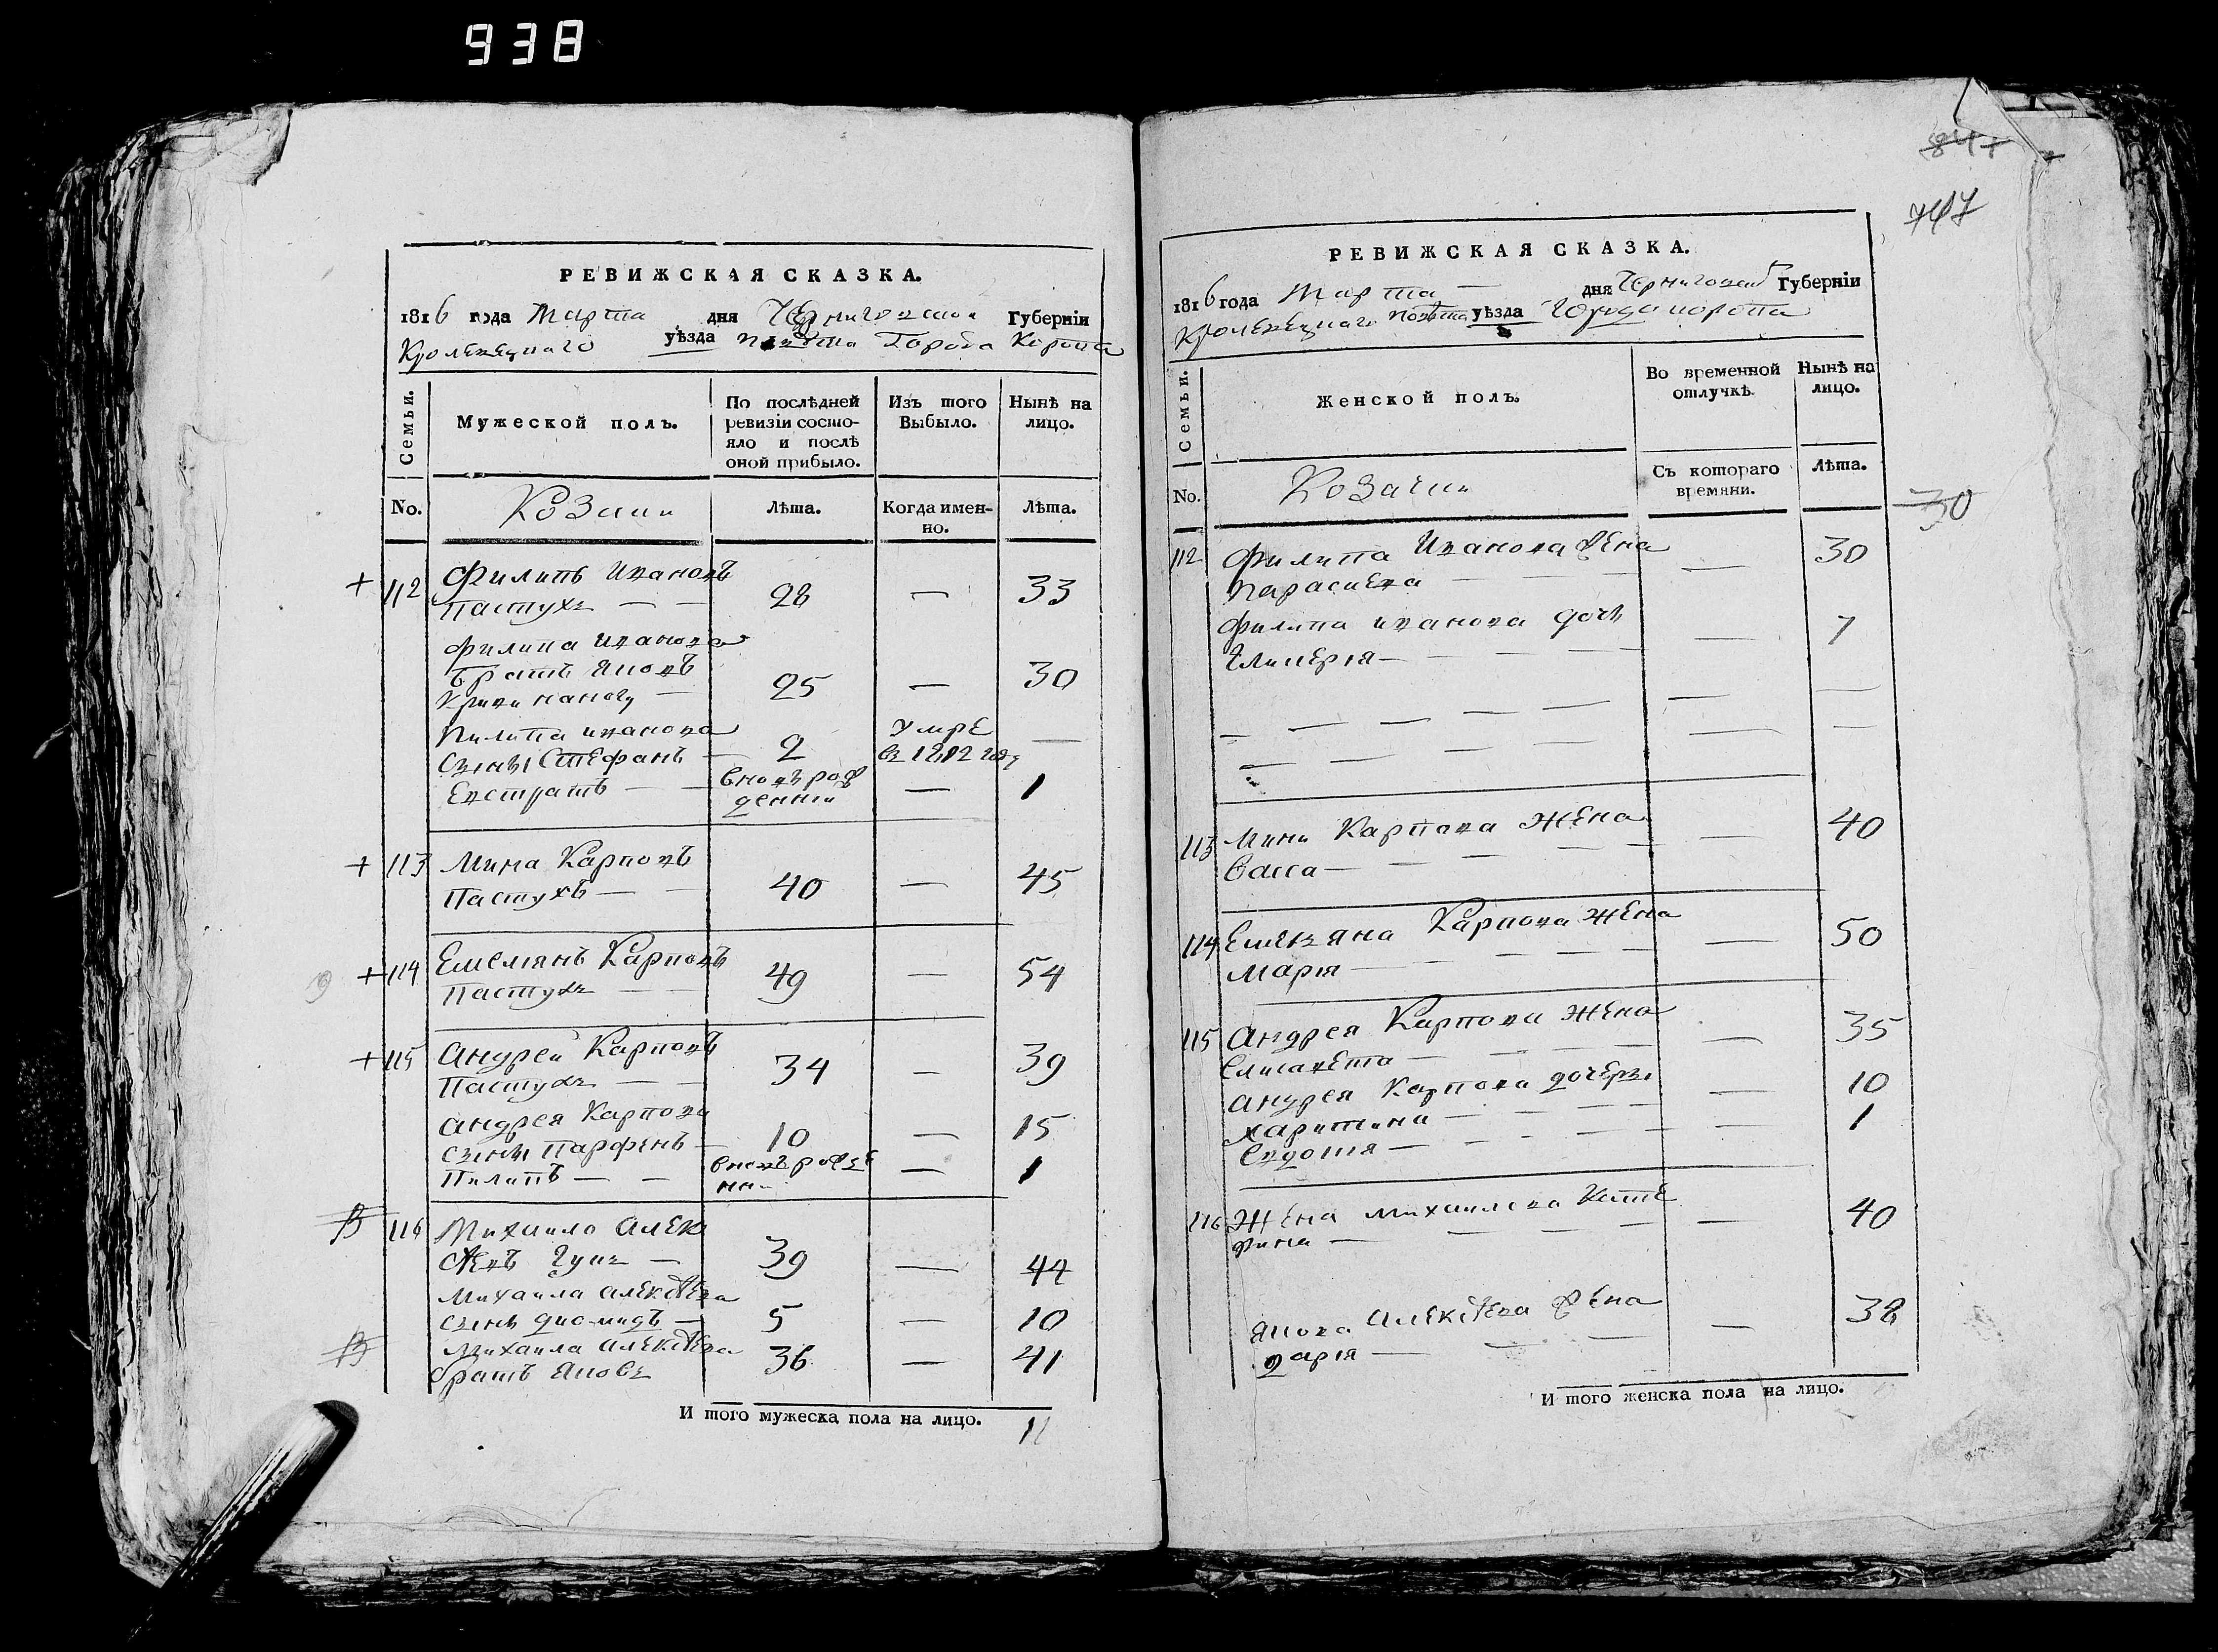 938
РЕВИЖСКАЯ СКАЗКА.
1816 года Марта дня Черниговской Губерніи
Кролевецкаго уѣзда повѣта Города Коропа
Семьи.
Мужеской полъ.
По послѣдней ревизіи состояло и послѣ оной прибыло.
Изъ того Выбыло.
Нынѣ на лицо.
No.
Козаки
Лѣта.
Когда именно.
Лѣта.
+ 112 Филипъ Ивановъ
Пастухъ — — 28 — 33
Филипа Иванова
братъ Яковъ 25 — 30
Пилипа Иванова
сыны Стефанъ — 2 умре въ 1812 году —
Евстратъ — — вновъ рожденній — 1
+ 113 Мина Карповъ
Пастухъ — — 40 — 45
+ 114 Емелянъ Карповъ
Пастухъ — — 49 — 54
+ 115 Андрей Карповъ
Пастухъ — — 34 — 39
Андрея Карпова
сыны Парфенъ — 10 — 15
Пилипъ — — — 1
116 Михайло Алек
сѣевъ — 39 — 44
Михаила Алексѣева
сынъ Диомидъ — 5 — 10
Михаила Алексѣева
братъ Яковъ 36 — 41
И того мужеска пола на лицо. 11
847
747
РЕВИЖСКАЯ СКАЗКА.
1816 года Марта — дня Черниговской Губерніи
Кролевецкаго повѣта уѣзда Города Коропа
Семьи.
Женской полъ.
Во временной отлучкѣ.
Нынѣ на лицо.
No.
Козачки
Съ котораго времяни.
Лѣта.
30
112 Филипа Иванова жена
Параскева — — — — 30
Филипа Иванова дочь
Гликерія — — — — 7
113 Мини Карпова жена
Васса — — — — 40
114 Емеляна Карпова жена
Марія — — — — 50
115 Андрея Карпова жена
Елисавета — — — — 35
Андрея Карпова дочеры
Харитина — — — — 10
Евдокія — — — — 1
116 Жена Михайлова Кате
рина — — — — 40
Якова Алексѣева жена
Дарія — — — — 38
И того женска пола на лицо.